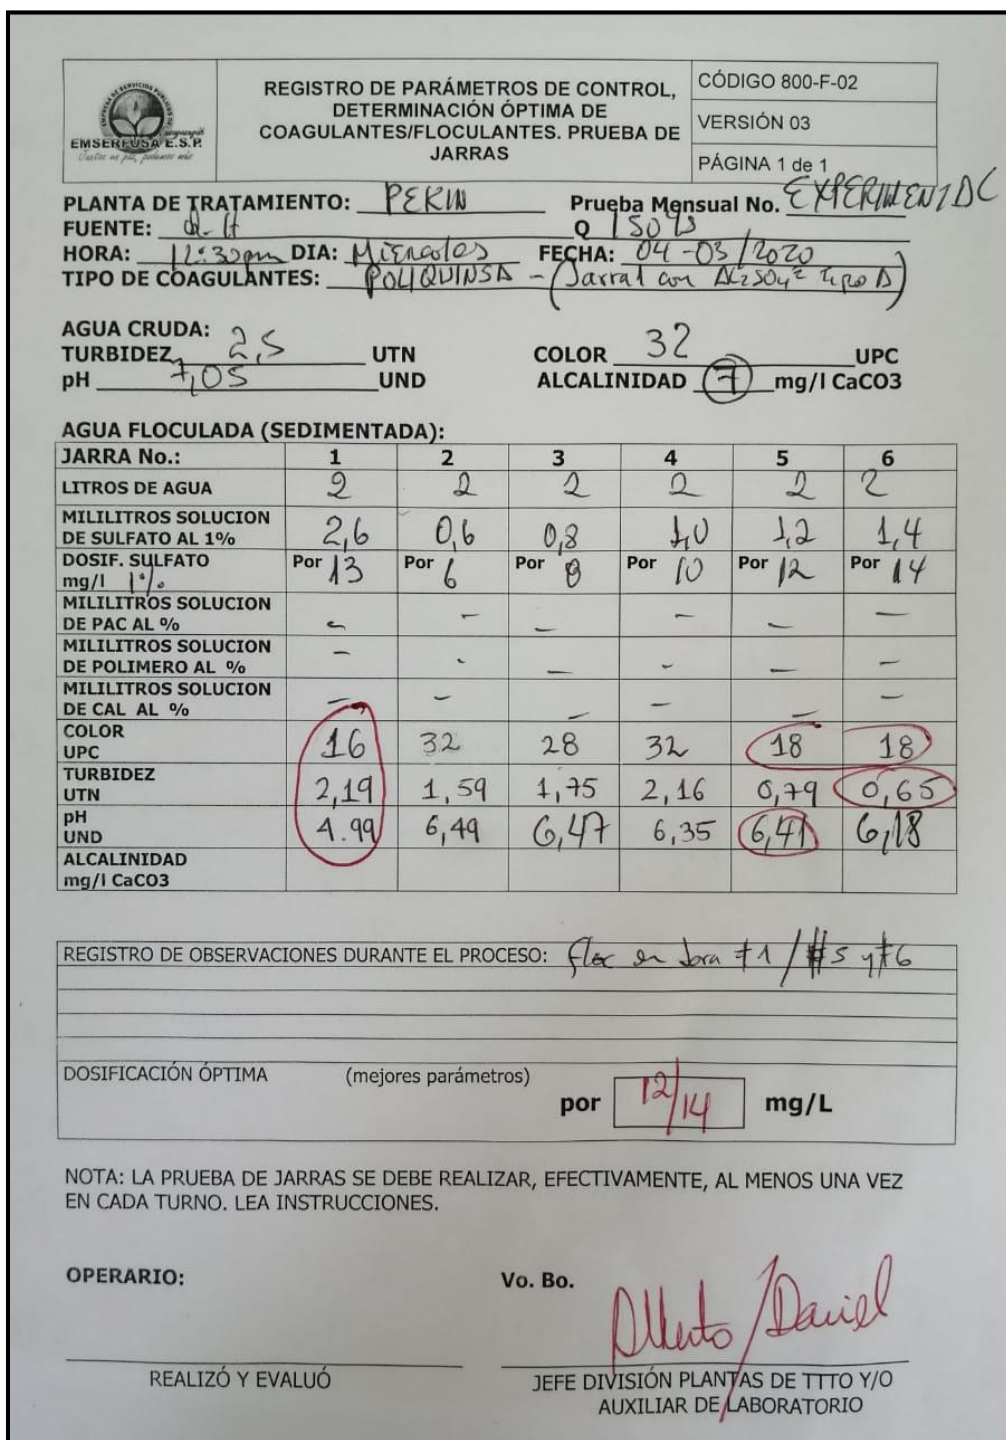 EMPRESA DE SERVICIOS PÚBLICOS DE
EMSERFUSA E.S.P.
Juntos en paz, podemos más
REGISTRO DE PARÁMETROS DE CONTROL,
DETERMINACIÓN ÓPTIMA DE
COAGULANTES/FLOCULANTES. PRUEBA DE
JARRAS
CÓDIGO 800-F-02
VERSIÓN 03
PÁGINA 1 de 1
PLANTA DE TRATAMIENTO: PEKIN Prueba Mensual No. EXPERIMENTAL
FUENTE: Q
HORA: 12:30pm DIA: Miércoles FECHA: 04-03/2020
TIPO DE COAGULANTES: POLIQUINSA - (Jarra 1 con tipo
AGUA CRUDA:
TURBIDEZ 2,5 UTN COLOR 32 UPC
pH 7,05 UND ALCALINIDAD 7 mg/l CaCO3
AGUA FLOCULADA (SEDIMENTADA):
JARRA No.: 1 2 3 4 5 6
LITROS DE AGUA 2 2 2 2 2 2
MILILITROS SOLUCION
DE SULFATO AL 1% 2,6 0,6 0,8 1,0 1,2 1,4
DOSIF. SULFATO
mg/l 1% Por 13 Por 6 Por 8 Por 10 Por 12 Por 14
MILILITROS SOLUCION
DE PAC AL % - - - - - -
MILILITROS SOLUCION
DE POLIMERO AL % - - - - - -
MILILITROS SOLUCION
DE CAL AL % - - - - - -
COLOR
UPC 16 32 28 32 18 18
TURBIDEZ
UTN 2,19 1,59 1,75 2,16 0,79 0,65
pH
UND 4.99 6,49 6,47 6,35 6,41 6,18
ALCALINIDAD
mg/l CaCO3
REGISTRO DE OBSERVACIONES DURANTE EL PROCESO: Floc en #1 / #5 y #6
DOSIFICACIÓN ÓPTIMA (mejores parámetros)
por 12/14 mg/L
NOTA: LA PRUEBA DE JARRAS SE DEBE REALIZAR, EFECTIVAMENTE, AL MENOS UNA VEZ
EN CADA TURNO. LEA INSTRUCCIONES.
OPERARIO: Vo. Bo.
Alberto / Daniel
REALIZÓ Y EVALUÓ
JEFE DIVISIÓN PLANTAS DE TTTO Y/O
AUXILIAR DE LABORATORIO